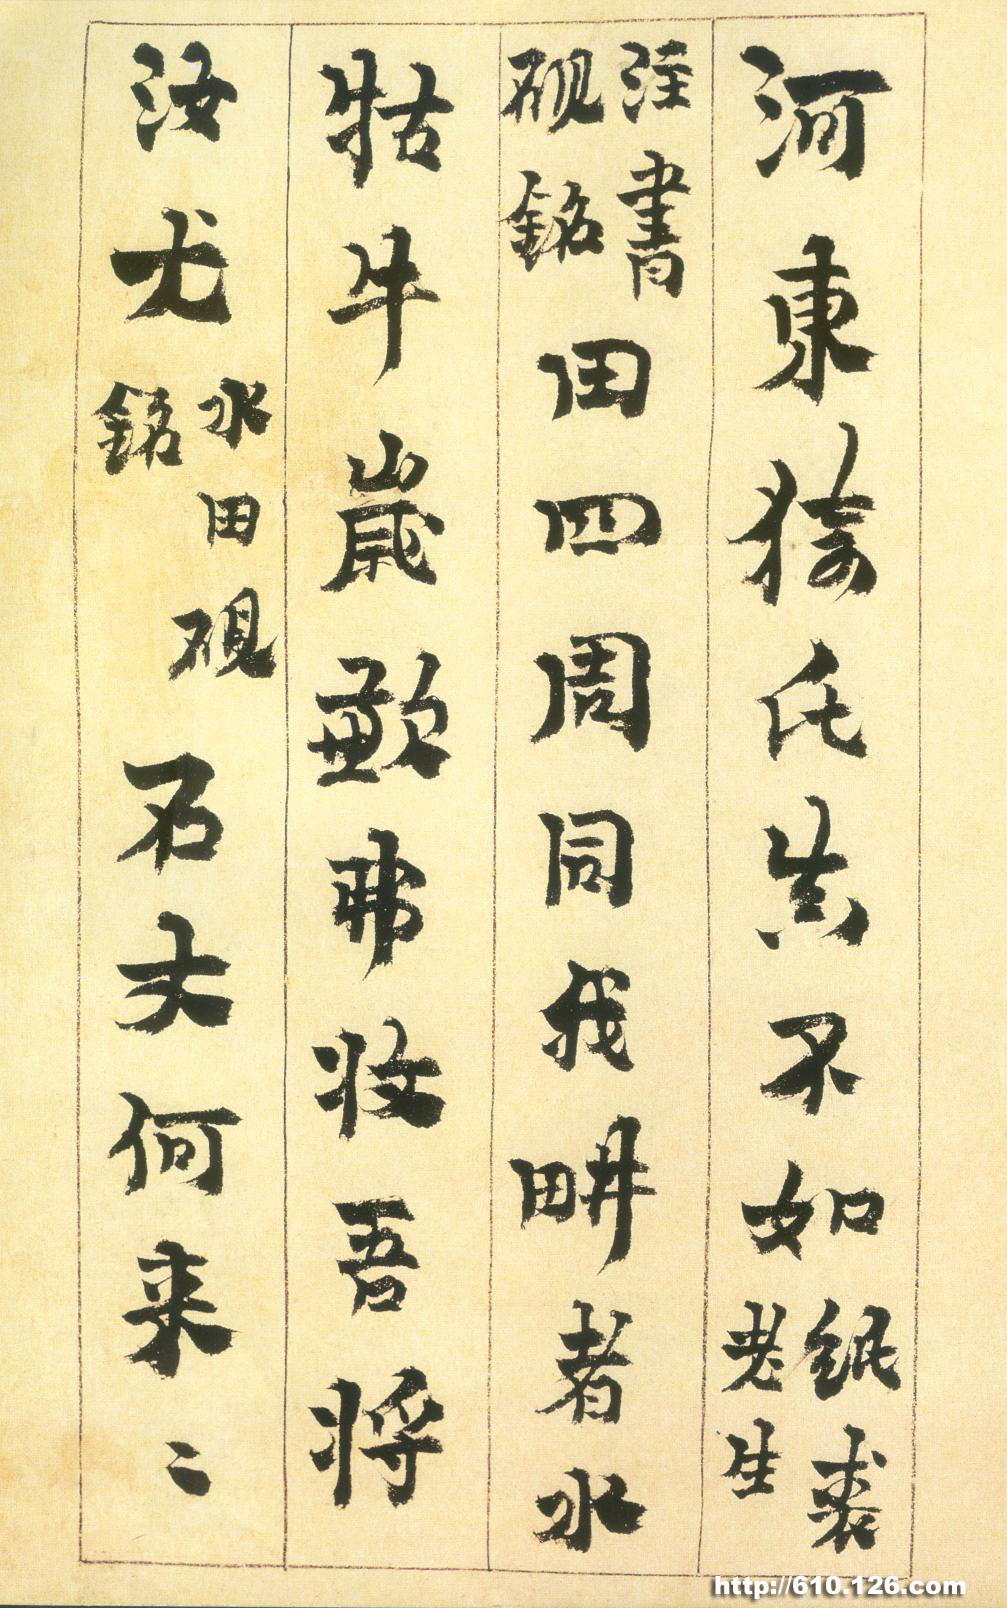 河東猗氏其不如紙裘老生
注書硯銘田四周同我畊者水
牯牛歲歉弗收吾將
汝尤水田硯銘石丈何来二
http://610.126.com